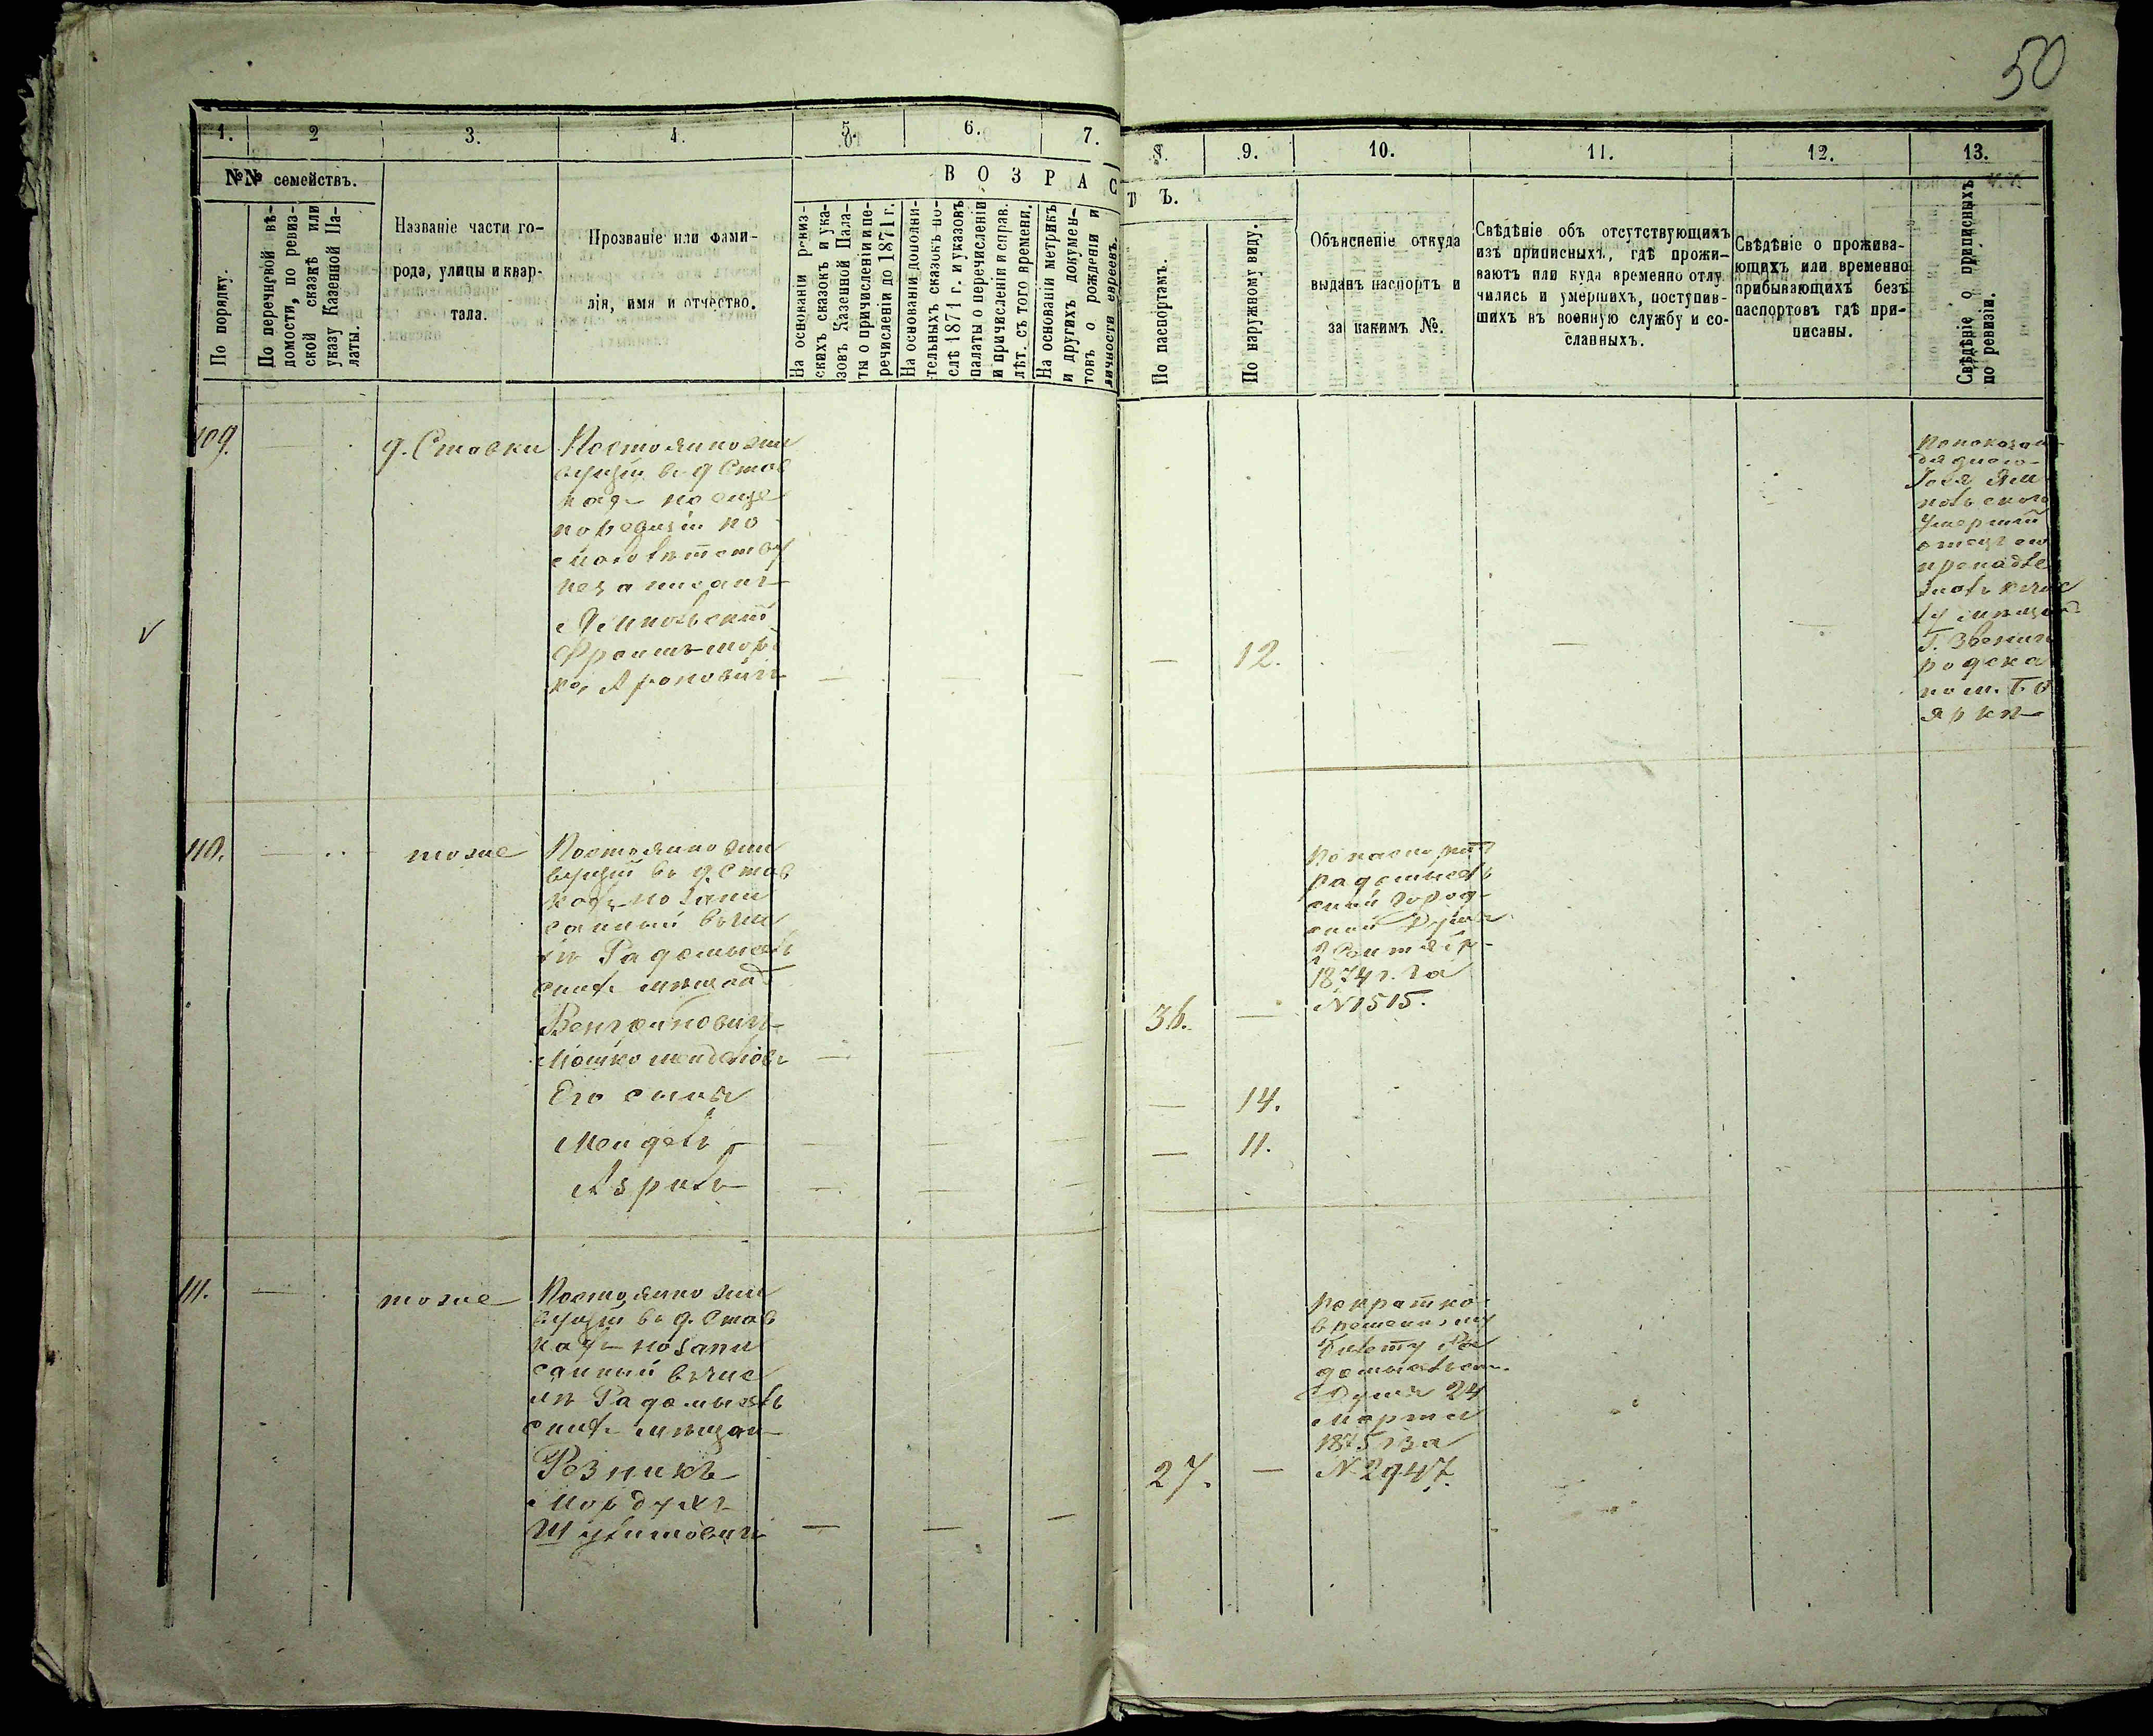 50
1. 2 3. 4. 5. 6. 7. 8. 9. 10. 11. 12. 13.
№№ семействъ.
В О З Р А С Т Ъ.
По порядку.
По перечневой вѣ-
домости, по ревиз-
ской сказкѣ или
указу Казенной Па-
латы.
Названіе части го-
рода, улицы и квар-
тала.
Прозваніе или фами-
лія, имя и отчество.
На основаніи ревиз-
скихъ сказокъ и ука-
зовъ Казенной Пала-
ты о причисленіи и пе-
речисленіи до 1871 г.
На основаніи дополни-
тельныхъ сказокъ по-
слѣ 1871 г. и указовъ
палаты о перечисленіи
и причисленіи и справ.
лѣт. съ того времени.
На основаніи метрикъ
и другихъ докумен-
товъ о рожденіи и
личности евреевъ.
По паспортамъ.
По наружному виду.
Объясненіе откуда
выданъ паспортъ и
за какимъ №.
Свѣдѣніе объ отсутствующихъ
изъ приписныхъ, гдѣ прожи-
ваютъ или куда временно отлу
чились и умершихъ, поступив-
шихъ въ военную службу и со-
сланныхъ.
Свѣдѣніе о прожива-
ющихъ или временно
прибывающихъ безъ
паспортовъ гдѣ при-
писаны.
Свѣдѣніе о приписныхъ
по ревизіи.
109.
д. Ставки
Постоянно жи
вущій въ д Став
кахъ но еще
по ревизіи по
незаписанъ
Френтъ-Мор
ко Ароновичъ
— — — — 12. — — —
умершій
отецъ его
принадле
жалъ къ чис
лу мѣщан
Г. Звениго
родска
по м. Бо
яркѣ
110.
тоже
Постоянно жи
вущій въ д. Став
кахъ но запи
санный въ чис
лѣ Радомысль
скихъ мѣщанъ
Мошко Менделовъ
— — — 36. —
По паспорту
Радомысль
ской город-
ской Думы
2 Сентябр-
1874 г. за
№ 1515.
Его сынъ
— 14.
Мендель
— — — — 11.
Азриль
— — —
111.
тоже
Постоянно жи
вущій въ д. Став
кахъ но запи
санный въ чис
лѣ Радомысль
скихъ мѣщан
Резникъ
Мордухъ
— — — 27. —
По кратко-
временному
билету Ра
домысльск.
Думы 24
Марта
1875 г за
№ 2947.